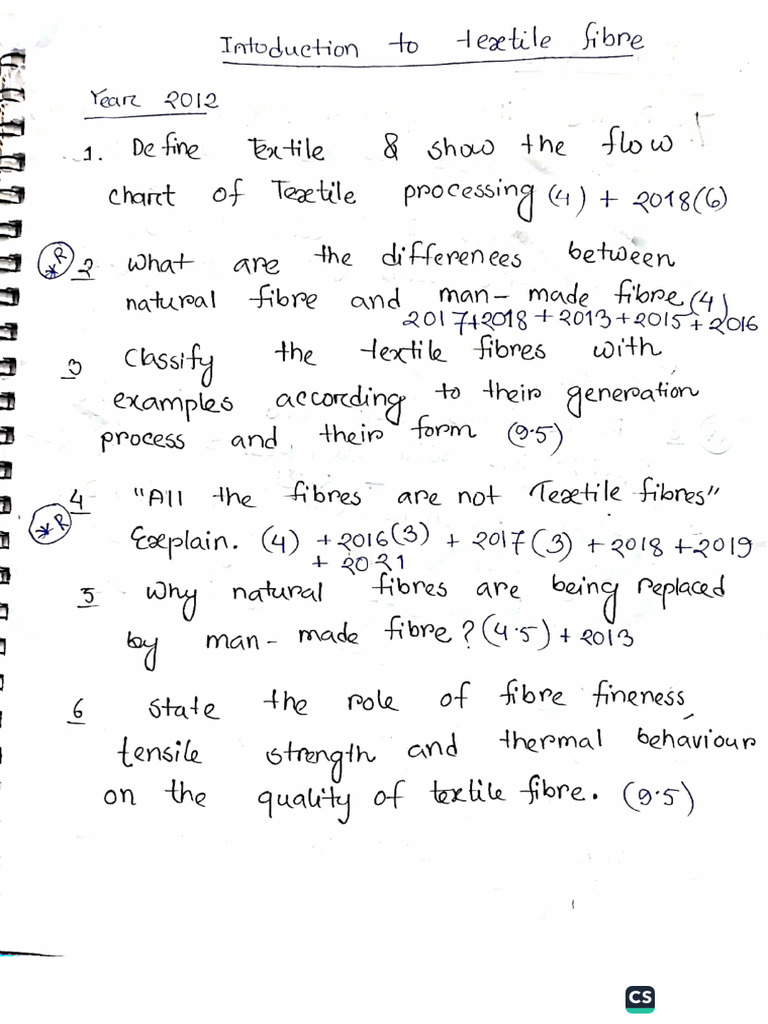 Intoduction to textile fibre
Year 2012
1. Define Textile & show the flow
chart of Textile processing (4) + 2018(6)
*R 2 What are the differences between
natural fibre and man-made fibre (4)
2017+2018+2013+2015+2016
3 Classify the textile fibres with
examples according to their generation
process and their form (9.5)
4 "All the fibres are not Textile fibres"
*R Explain. (4) + 2016(3) + 2017(3) + 2018 + 2019
+ 2021
5 Why natural fibres are being replaced
by man-made fibre? (4.5) + 2013
6 State the role of fibre fineness,
tensile strength and thermal behaviour
on the quality of textile fibre. (9.5)
CS